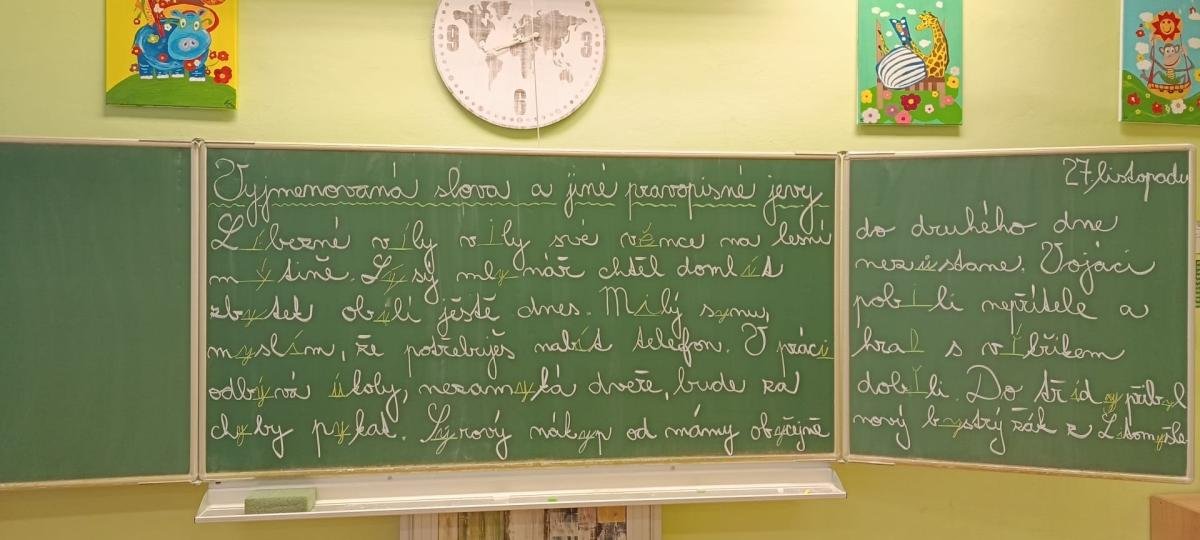 9
3
6
27. listopadu
Vyjmenovaná slova a jiné pravopisné jevy
Líbezné víly vily své věnce na lesní
mýtině. Lysý mlynář chtěl domlít
zbytek obilí ještě dnes. Milý synu,
myslím, že potřebuješ nabít telefon. V práci
odbývá úkoly, nezamyká dveře, bude za
chyby pykat. Sýrový nákyp od mámy obyčejně
do druhého dne
nezůstane. Vojáci
pobili nepřítele a
hrad s vížkem
dobyli. Do třídy přibyl
nový bystrý žák z Litomyšle